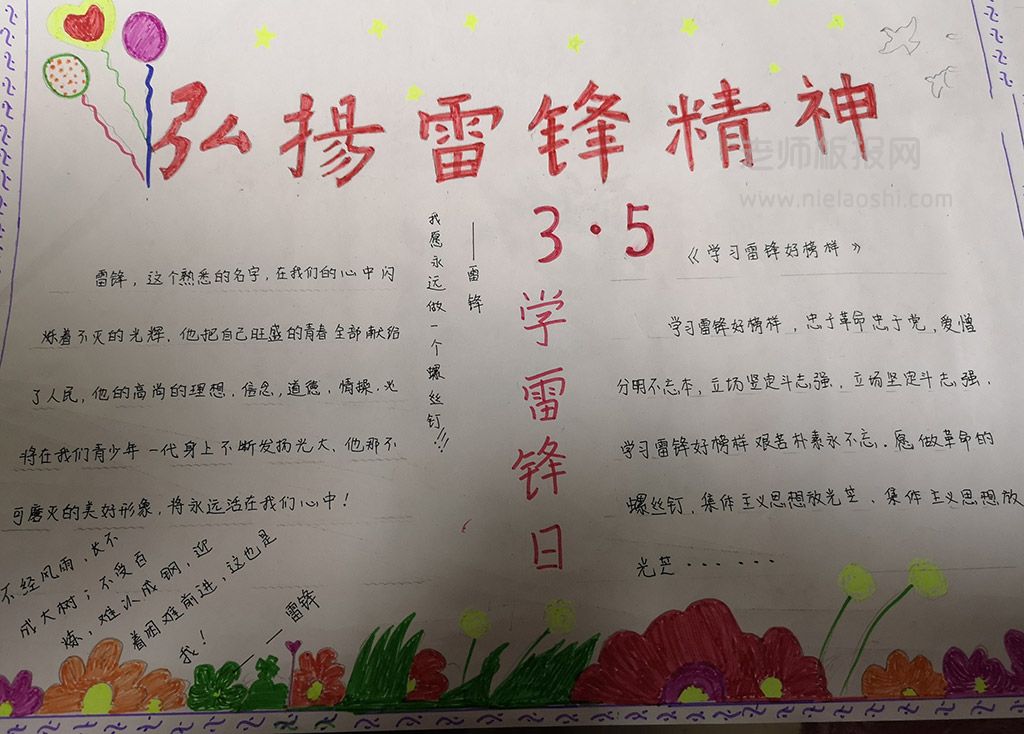 弘揚雷锋精神
老师版报网
www.nielaoshi.com
3·5
学雷锋日
雷锋，这个熟悉的名字，在我们的心中闪
烁着不灭的光辉，他把自己旺盛的青春全部献给
了人民，他的高尚的理想，信念，道德，情操，必
将在我们青少年一代身上不断发扬光大，他那不
可磨灭的美好形象，将永远活在我们心中！
我愿永远做一个螺丝钉！！！
——雷锋
《学习雷锋好榜样》
学习雷锋好榜样，忠于革命忠于党，爱憎
分明不忘本，立场坚定斗志强，立场坚定斗志强，
学习雷锋好榜样 艰苦朴素永不忘．愿做革命的
螺丝钉，集体主义思想放光芒、集体主义思想放
光芒······
不经风雨，长不
成大树；不受百
炼，难以成钢，迎
着困难前进，这也是
我！
——雷锋